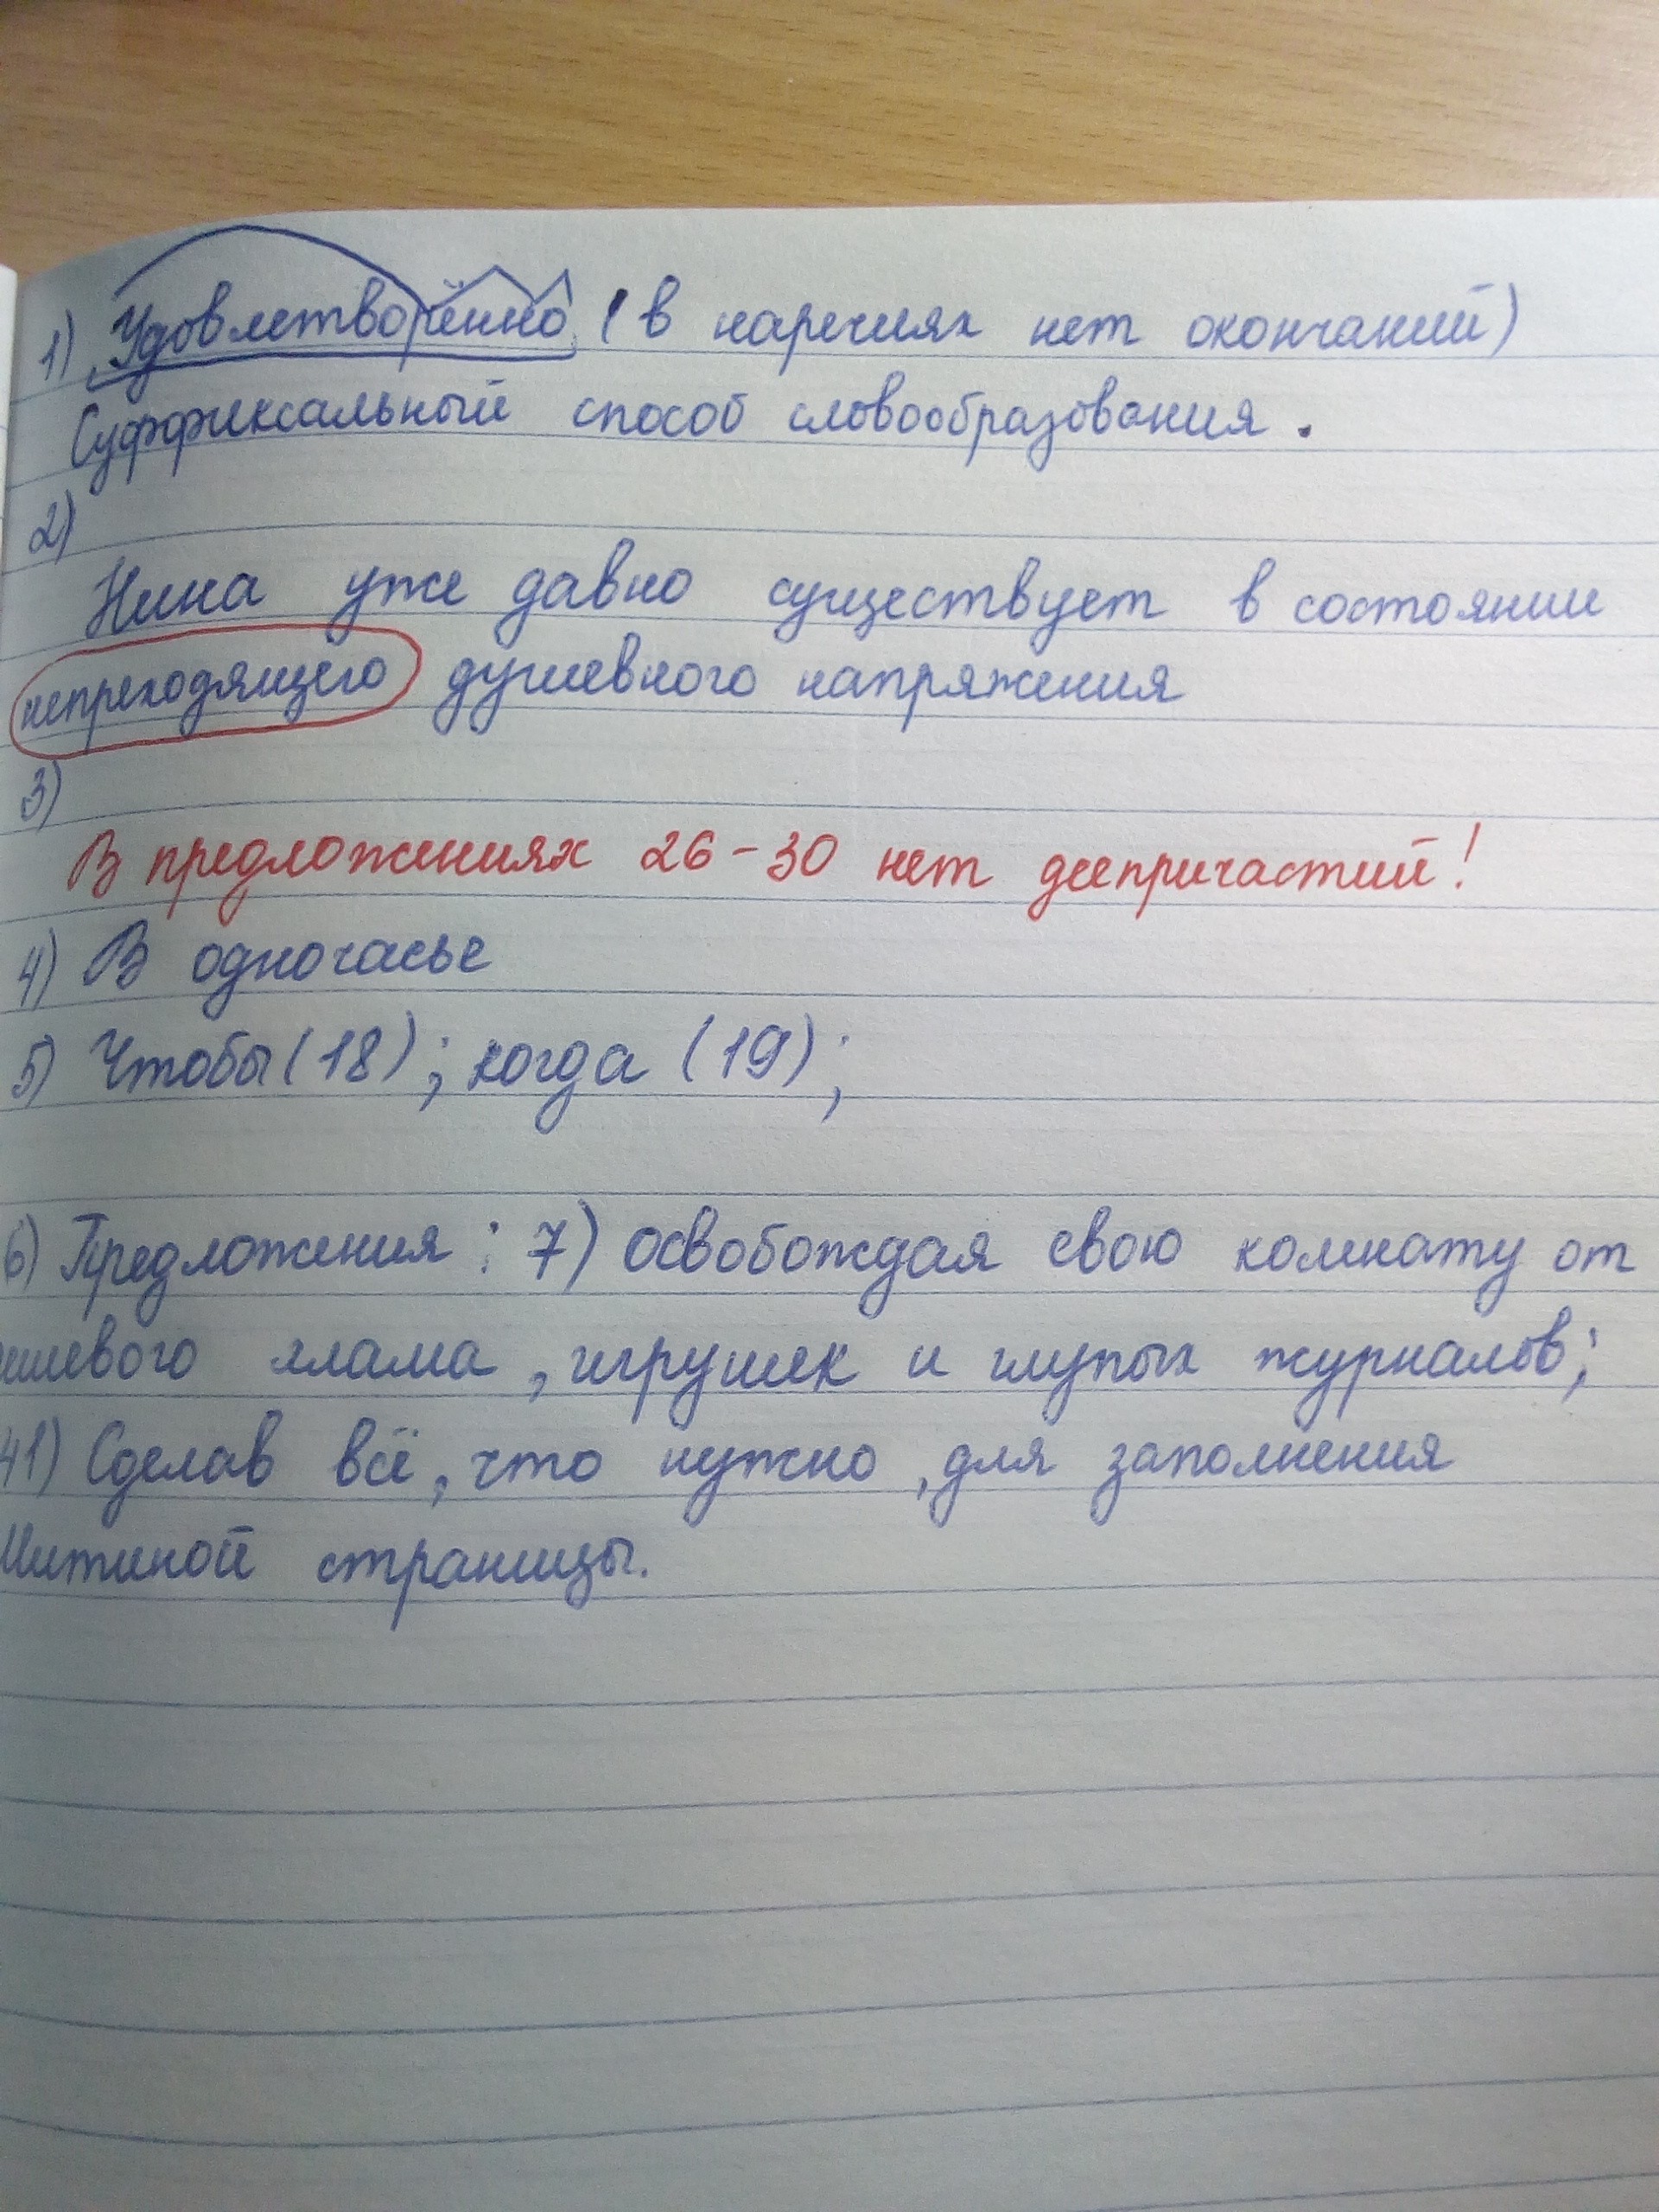 1) Удовлетворённо (в наречиях нет окончаний)
Суффиксальный способ словообразования.
2)
Нина уже давно существует в состоянии
непреходящего душевного напряжения
3)
В предложениях 26-30 нет деепричастий!
4) В одночасье
5) Чтобы (18); когда (19);
6) Предложения: 7) освобождая свою комнату от
хлама, игрушек и глупых журналов;
41) Сделав всё, что нужно, для заполнения
Митиной страницы.